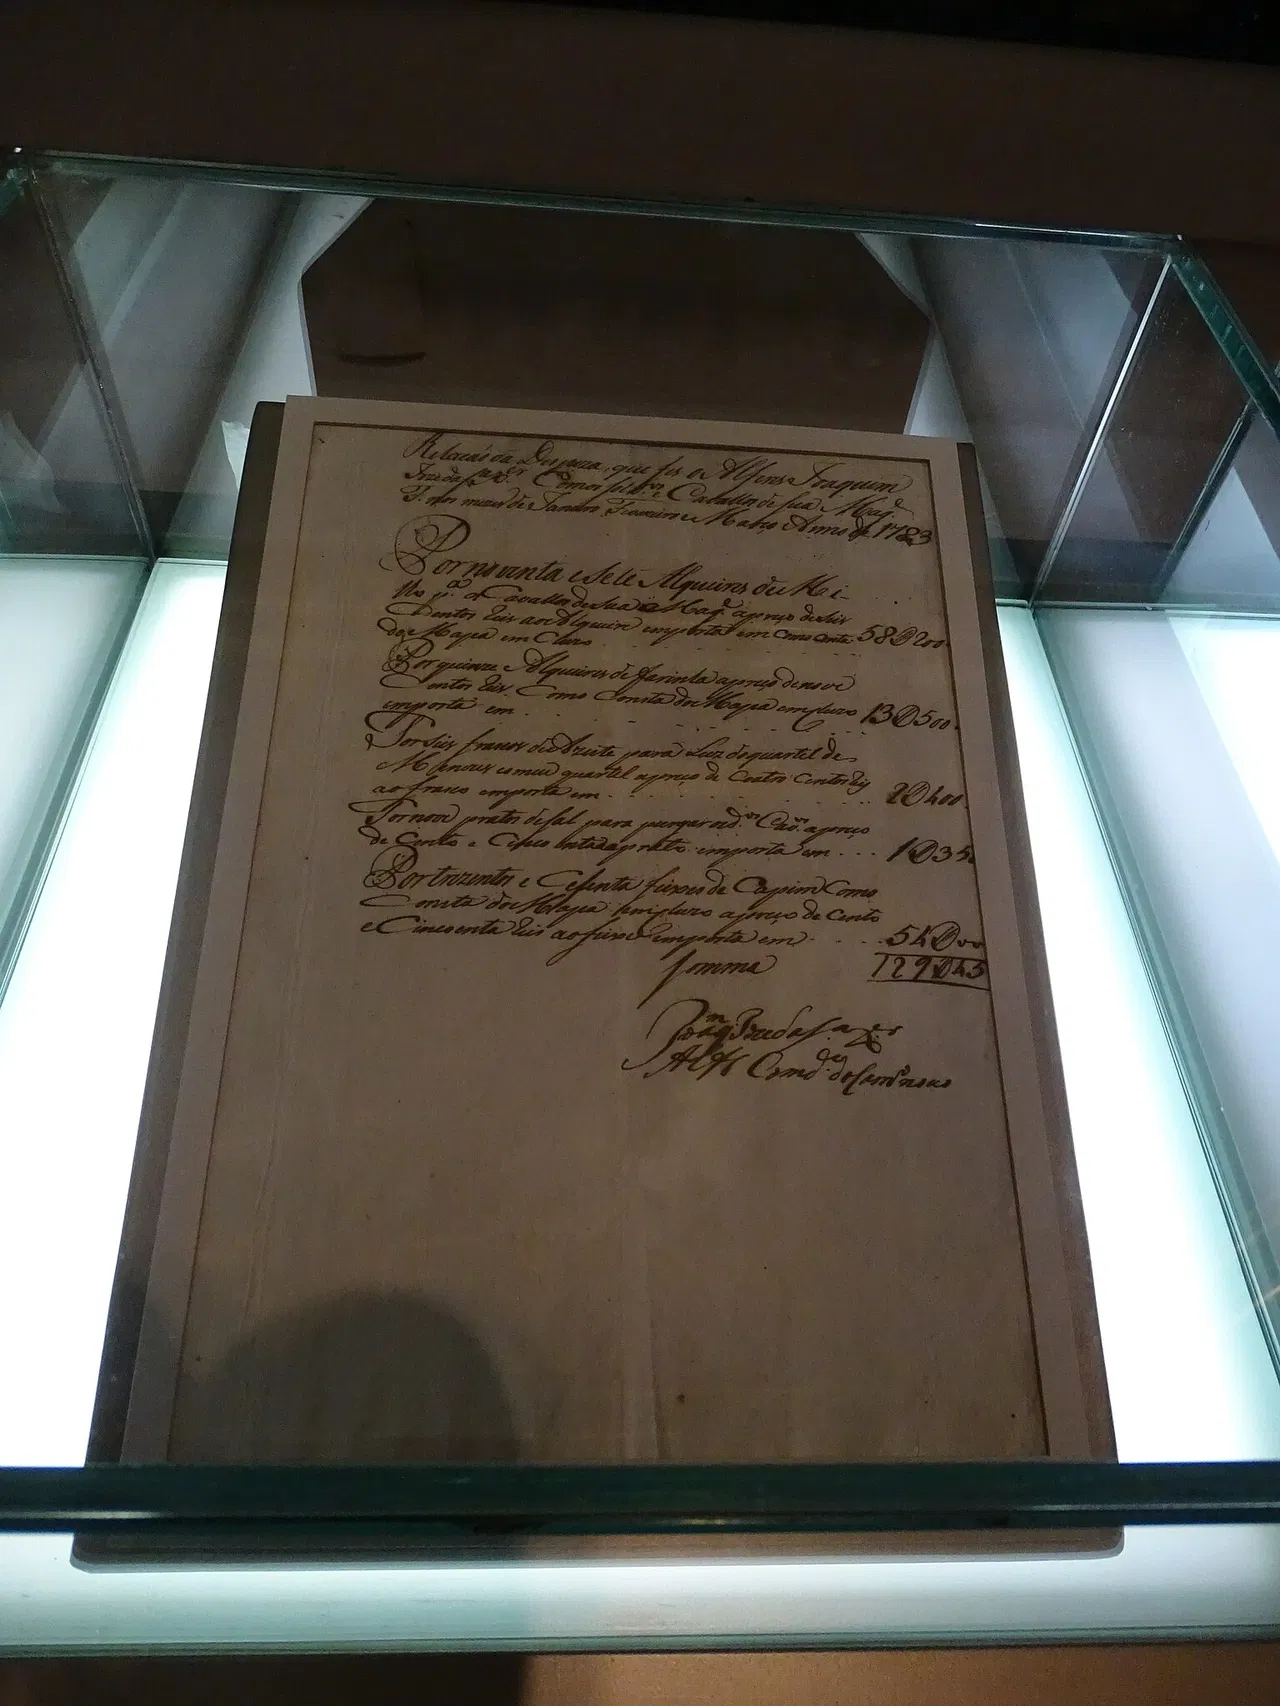 Relacaó da Despeza, que fes o Alferes Joaquim
Joze da S.ª X.er Comos sold.os e Cavallos de sua Mag.e
F. nos mezes de Janeiro Fevereiro e Março Anno de 1783
Por noventa e sete Alqueires de Mi-
lho p.ª os Cavallos de sua Mag.e a preço de seis
Centos Reis ao Alqueire emporta em Como Consta 58$200
do Mapea em Cluzo
Por quinze Alqueires de farinha a preço de nove
Centos Reis. Como Consta do Mapea emcluzo 13$500.
emporta em
Por seis frascos de Azeite para Luz do quartel de
Menezes e meu quartel a preço de Coatro Centos Reis
ao frasco emporta em 2$400.
Por nove pratos de sal para purgar os d.os Cav.os a preço
de Cento e Cinco enta da prato. emporta em 1$350
Por trezentos e Cesenta feixes de Capim Como
Consta do Mapea emcluzo a preço de Cento
e Cinco enta Reis ao feixe emporta em 54$000
somma 129$45
Joaq.m Joze da S.ª X.er
Alfs Cmd.e do Cam.º novo